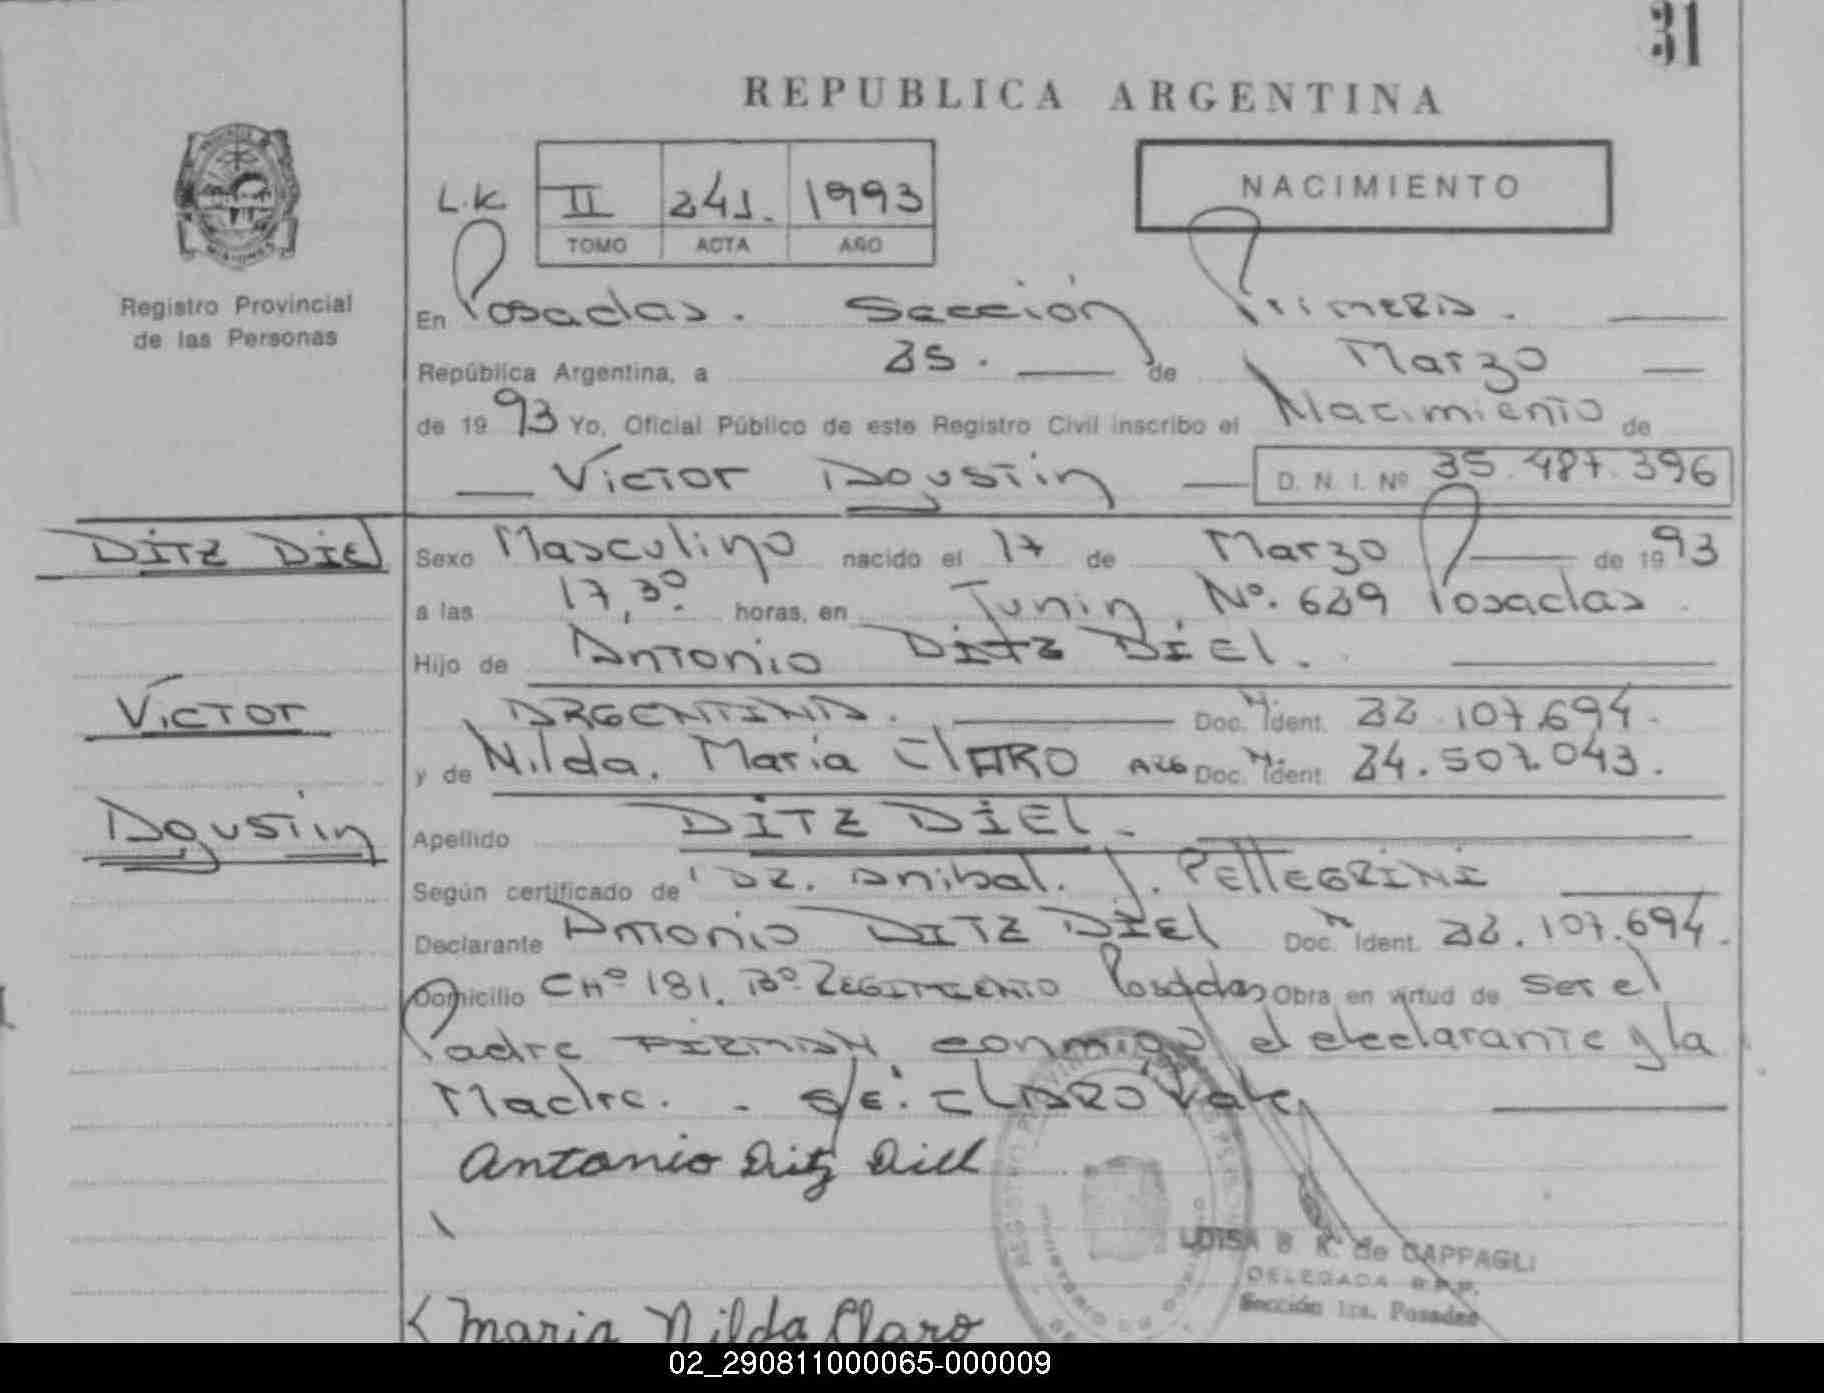 31
REPUBLICA ARGENTINA
NACIMIENTO
L.K II 241. 1993
TOMO ACTA AÑO
Registro Provincial
de las Personas
En Posadas. Sección Primera.
República Argentina, a 25. de Marzo
de 1993 Yo, Oficial Público de este Registro Civil inscribo el Nacimiento de
Víctor Agustín D. N. I. Nº 35.487.396
DITZ DIEL
Sexo Masculino nacido el 17 de Marzo de 1993
a las 17,30 horas, en Junin Nº. 629 Posadas.
Hijo de Antonio DITZ DIEL.
Víctor
ARGENTINA. Doc. N. Ident. 22.107.694.
y de Nilda. María ClARO ARG Doc. N. Ident. 24.507.043.
Agustín
Apellido DITZ DIEL.
Según certificado de Dr. Anibal. J. PEllEGRINI
Declarante Antonio DITZ DIEl Doc. N Ident. 22.107.694.
Domicilio CHº 181. Bº REGIMIENTO Posadas Obra en virtud de ser el
Padre FIRMAN conmigo el declarante y la
Madre. - S/E: ClARO Vale,
Antonio Ditz Diel
LUISA B K. de CAPPAGLI
DELEGADA R.P.P.
Sección 1ra. Posadas
Maria Nilda Claro
02_290811000065-000009